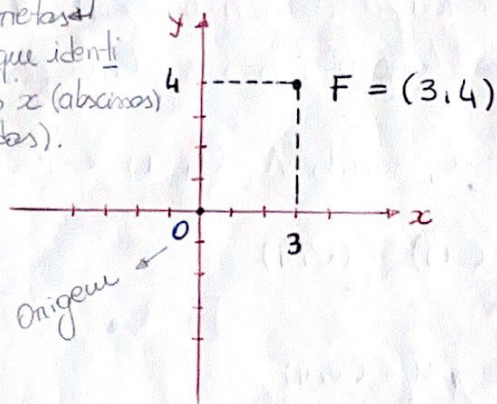 que identi
x (abscissas)
y
4
F = (3,4)
x
0
3
Origem